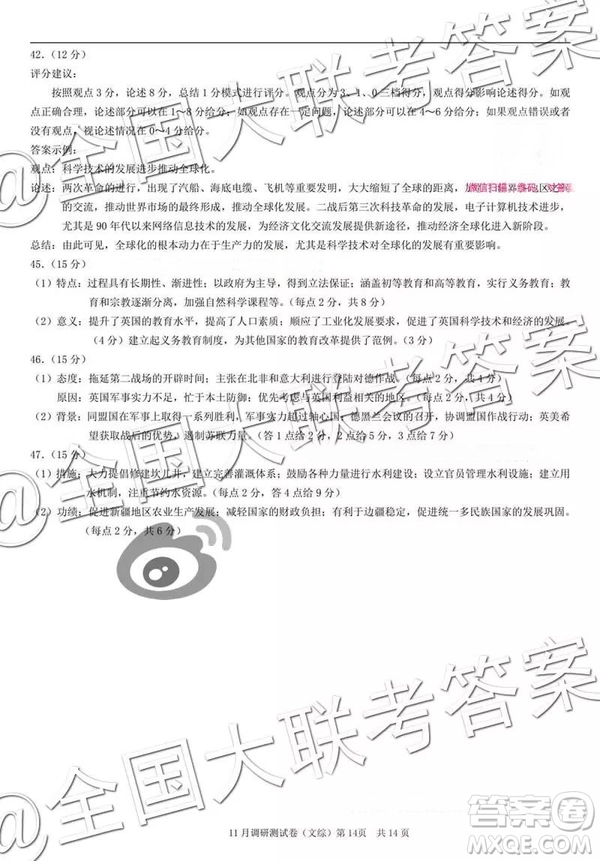 42.（12 分）
评分建议：
按照观点 3 分，论述 8 分，总结 1 分模式进行评分。观点分为 3、1、0 三档得分，观点影响论述得分。如观
点正确合理，论述可在 1～8 分给分；如观点存在一定合理性，论述可在 4～6 分给分；如果观点错误或者
没有观点，视论述情况在 0～4 分给分。
答案示例：
观点：科学技术的发展进步推动全球化。
论述：两次革命的进行，出现了汽船、海底电缆、飞机等重要发明，大大缩短了全球的距离，
的交流，推动世界市场的最终形成，推动了全球化的发展。二战后第三次科技革命的发展，电子计算机技术进步，
尤其是 90 年代以来网络信息技术的发展，为经济文化交流发展提供新途径，推动全球化发展进入新阶段。
总结：由此可见，全球化的根本动力在于生产力的发展，尤其是科学技术对全球化的发展有重要影响。
45.（15 分）
（1）特点：过程具有长期性、渐进性；以政府为主导，得到立法保证；涵盖初等教育和高等教育，实行义务教育；教
育和宗教逐渐分离，加强自然科学课程等。（每点 2 分，共 8 分）
（2）意义：提升了英国的教育水平，提高了人口素质；顺应了工业化发展，促进了英国科学技术和经济的发展。
（4 分）建立起义务教育制度，为其他国家的教育改革提供了范例。（3 分）
46.（15 分）
（1）态度：拖延第二战场的开辟时间；主张在北非和意大利进行登陆对德作战。（每点 2 分，共 4 分）
原因：英国军事实力不足，忙于本土防御；使英国利益相关的地区。（每点 2 分，共 4 分）
（2）背景：同盟国在军事上取得一系列胜利，军事力量超过轴心国；德黑兰会议的召开，协调盟国作战行动；英美希
望获取战后的优势，遏制苏联力量。（答 1 点给 2 分，2 点给 5 分，3 点给 7 分）
47.（15 分）
（1）措施：大力提倡修建坎儿井，建立完善灌溉体系；鼓励各种力量进行水利建设；设立官员管理水利设施；建立用
水机制，注重节约水资源。（每点 2 分，答 4 点给 9 分）
（2）功绩：促进新疆地区农业生产发展；减轻国家的财政负担；有利于边疆稳定，促进统一多民族国家的发展巩固。
（每点 2 分，共 6 分）
@全国大联考答案
@全国大联考答案
@全国大联考答案
11 月调研测试卷（文综）第 14页 共 14 页
答案圈
MXQE.COM